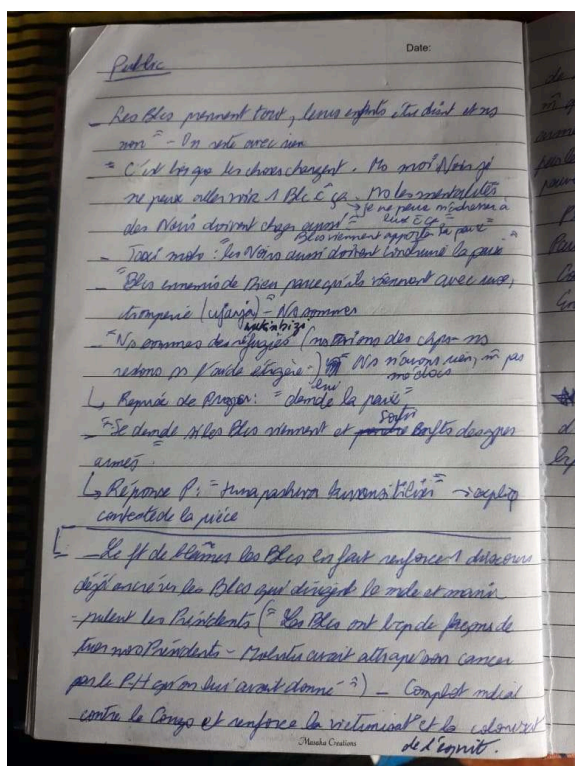 Date:
Public
- Les Blcs prennent tout, leurs enfants étudient et ns
non" - On reste avec rien
- "C'est lorsque les choses changent. Mo moi Noir je
ne peux aller voir 1 Blc c ça. Mo les mentalités
→ je ne peux m'adresser à
des Noirs doivent changer aussi" eux
Blcs viennent apporter la paix"
- Taxi moto: "les Noirs aussi doivent construire la paix"
- "Blcs ennemis de Dieu parce qu'ils viennent avec ruse,
tromperie (ujanja) - Ns sommes
- "Ns sommes des réfugiés (ns avions des chps - ns
restons ss l'aide étrgère -) Ns n'avons rien, m̂ pas
↳ Reprise de : "demde la paix"
- "Se demde si les Blcs viennent et sortir enfts des grpes
armés."
↳ Réponse P: → expliq
contexte de la pièce
- Le ft de blâmer les Blcs en fait renforce 1 discours
déjà ancré vs les Blcs qui dirigent le mde et mani-
pulent les Présidents ("Les Blcs ont bcp de façons de
tuer nos Présidents - Mobutu avait attrapé son cancer
par le qu'on lui avait donné") - Complot mdial
contre le Congo et renforce la victimisat° et la colonisat°
de l'esprit.
Masaka Creations